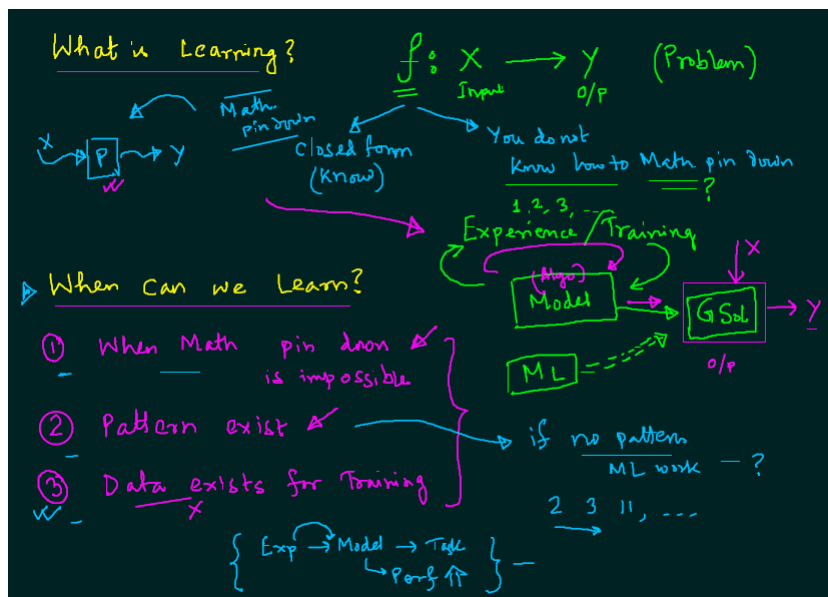 What is Learning?
f: X → Y (Problem)
Input O/P
Math
pin down
X → P → Y
closed form
(Know)
You do not
Know how to Math pin down
?
1, 2, 3, ...
Experience / Training
(Algo)
Model
X
G Sol → Y
O/P
ML
When Can we Learn?
① When Math pin down
is impossible
② Pattern exist
③ Data exists for Training
X
if no pattern
ML work — ?
2 3 11, ....
{ Exp → Model → Task } —
↳ Perf ⇑